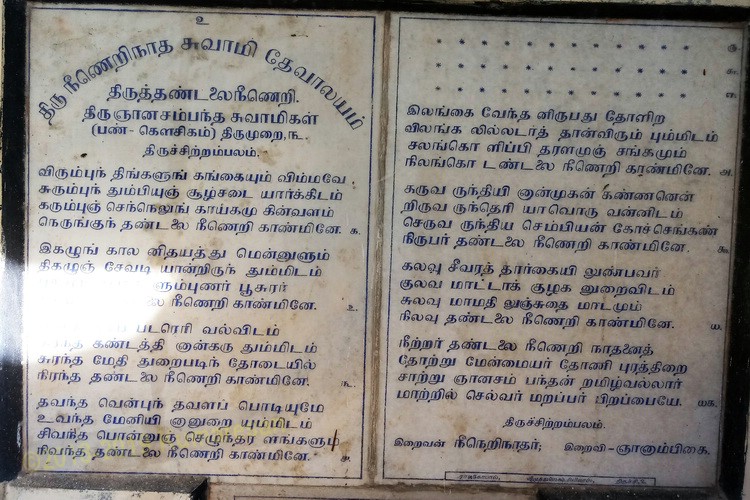 உ
திரு நீணெறிநாத சுவாமி தேவாலயம்
திருத்தண்டலைநீணெறி.
திருஞானசம்பந்த சுவாமிகள்
(பண்- கௌசிகம்) திருமுறை,௩.
திருச்சிற்றம்பலம்.
விரும்புந் திங்களுங் கங்கையும் விம்மவே
சுரும்புந் தும்பியுஞ் சூழ்சடை யார்க்கிடம்
கரும்புஞ் செந்நெலுங் காய்கமு கின்வளம்
நெருங்குந் தண்டலை நீணெறி காண்மினே. ௧.
இகழுங் கால னிதயத்து மென்னுளும்
திகழுஞ் சேவடி யான்றிருந் தும்மிடம்
ளும்புணர் பூசுரர்
லை நீணெறி காண்மினே. ௨.
படரெரி வல்விடம்
கண்டத்தி னான்கரு தும்மிடம்
சுரந்த மேதி துறைபடிந் தோடையில்
நிரந்த தண்டலை நீணெறி காண்மினே. ௩.
தவந்த வென்புந் தவளப் பொடியுமே
உவந்த மேனியி னானுறை யும்மிடம்
சிவந்த பொன்னுஞ் செழுந்தர ளங்களும்
நிவந்த தண்டலை நீணெறி காண்மினே. ௪.
* * * * * * * * * * * * ௫.
* * * * * * * * * * * * ௬.
* * * * * * * * * * * * ௭.
இலங்கை வேந்த னிருபது தோளிற
விலங்க லில்லடர்த் தான்விரும் பும்மிடம்
சலங்கொ ளிப்பி தரளமுஞ் சங்கமும்
நிலங்கொ டண்டலை நீணெறி காண்மினே. ௮.
கருவ ருந்தியி னான்முகன் கண்ணனென்
றிருவ ருந்தெரி யாவொரு வன்னிடம்
செருவ ருந்திய செம்பியன் கோச்செங்கண்
நிருபர் தண்டலை நீணெறி காண்மினே. ௯.
கலவு சீவரத் தார்கையி லுண்பவர்
குலவ மாட்டாக் குழக னுறைவிடம்
சுலவு மாமதி லுஞ்சுதை மாடமும்
நிலவு தண்டலை நீணெறி காண்மினே. ௰.
நீற்றர் தண்டலை நீணெறி நாதனைத்
தோற்று மேன்மையர் தோணி புரத்திறை
சாற்று ஞானசம் பந்தன் றமிழ்வல்லார்
மாற்றில் செல்வர் மறப்பர் பிறப்பையே. ௰௧.
திருச்சிற்றம்பலம்.
இறைவன் நீநெறிநாதர்; இறைவி -ஞானாம்பிகை.